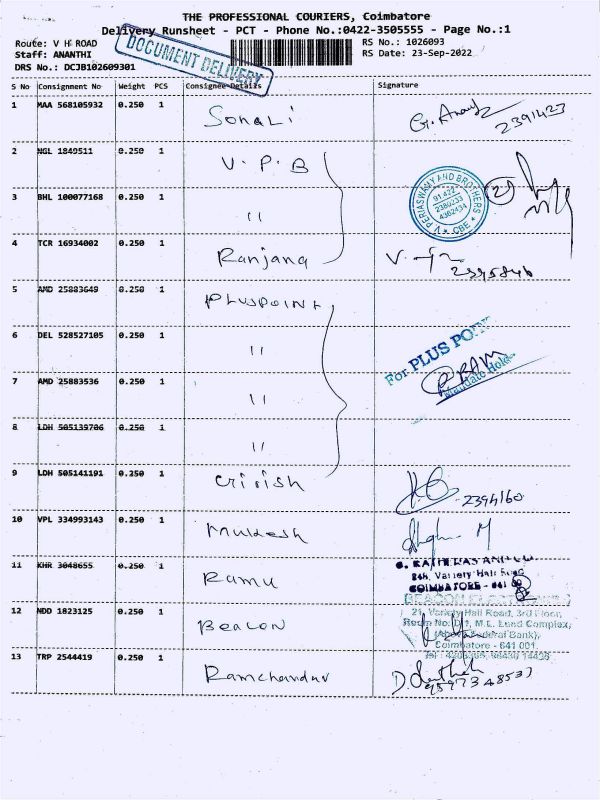 THE PROFESSIONAL COURIERS, Coimbatore
Delivery Runsheet - PCT - Phone No.:0422-3505555 - Page No.:1
Route: V H ROAD
RS No.: 1026093
Staff: ANANTHI
RS Date: 23-Sep-2022
DRS No.: DCJB102609301
DOCUMENT DELIVERY
S No Consignment No Weight PCS Consignee Details Signature
1 MAA 568105932 0.250 1 Sonali G. Anand 2391423
2 NGL 1849511 0.250 1 V. P. B
3 BHL 100077168 0.250 1 "
V PERIASWAMY AND BROTHERS * CBE *
91 422
2380233
4382434
21
4 TCR 16934002 0.250 1 Ranjana V. 2395846
5 AMD 25883649 0.250 1 PLUSPOINT
6 DEL 528527105 0.250 1 "
For PLUS POINT
7 AMD 25883536 0.250 1 "
8 LDH 505139706 0.250 1 "
9 LDH 505141191 0.250 1 Crirish 2394160
10 VPL 334993143 0.250 1 Mukesh
11 KHR 3048655 0.250 1 Ramu
Variety Hall Road
COIMBATORE - 641
12 NDD 1823125 0.250 1 Beacon
21, Variety Hall Road, 3rd Floor,
Room No: D 1, M.L. Lund Complex,
(Above Federal Bank),
Coimbatore - 641 001.
13 TRP 2544419 0.250 1 Ramchandar D.